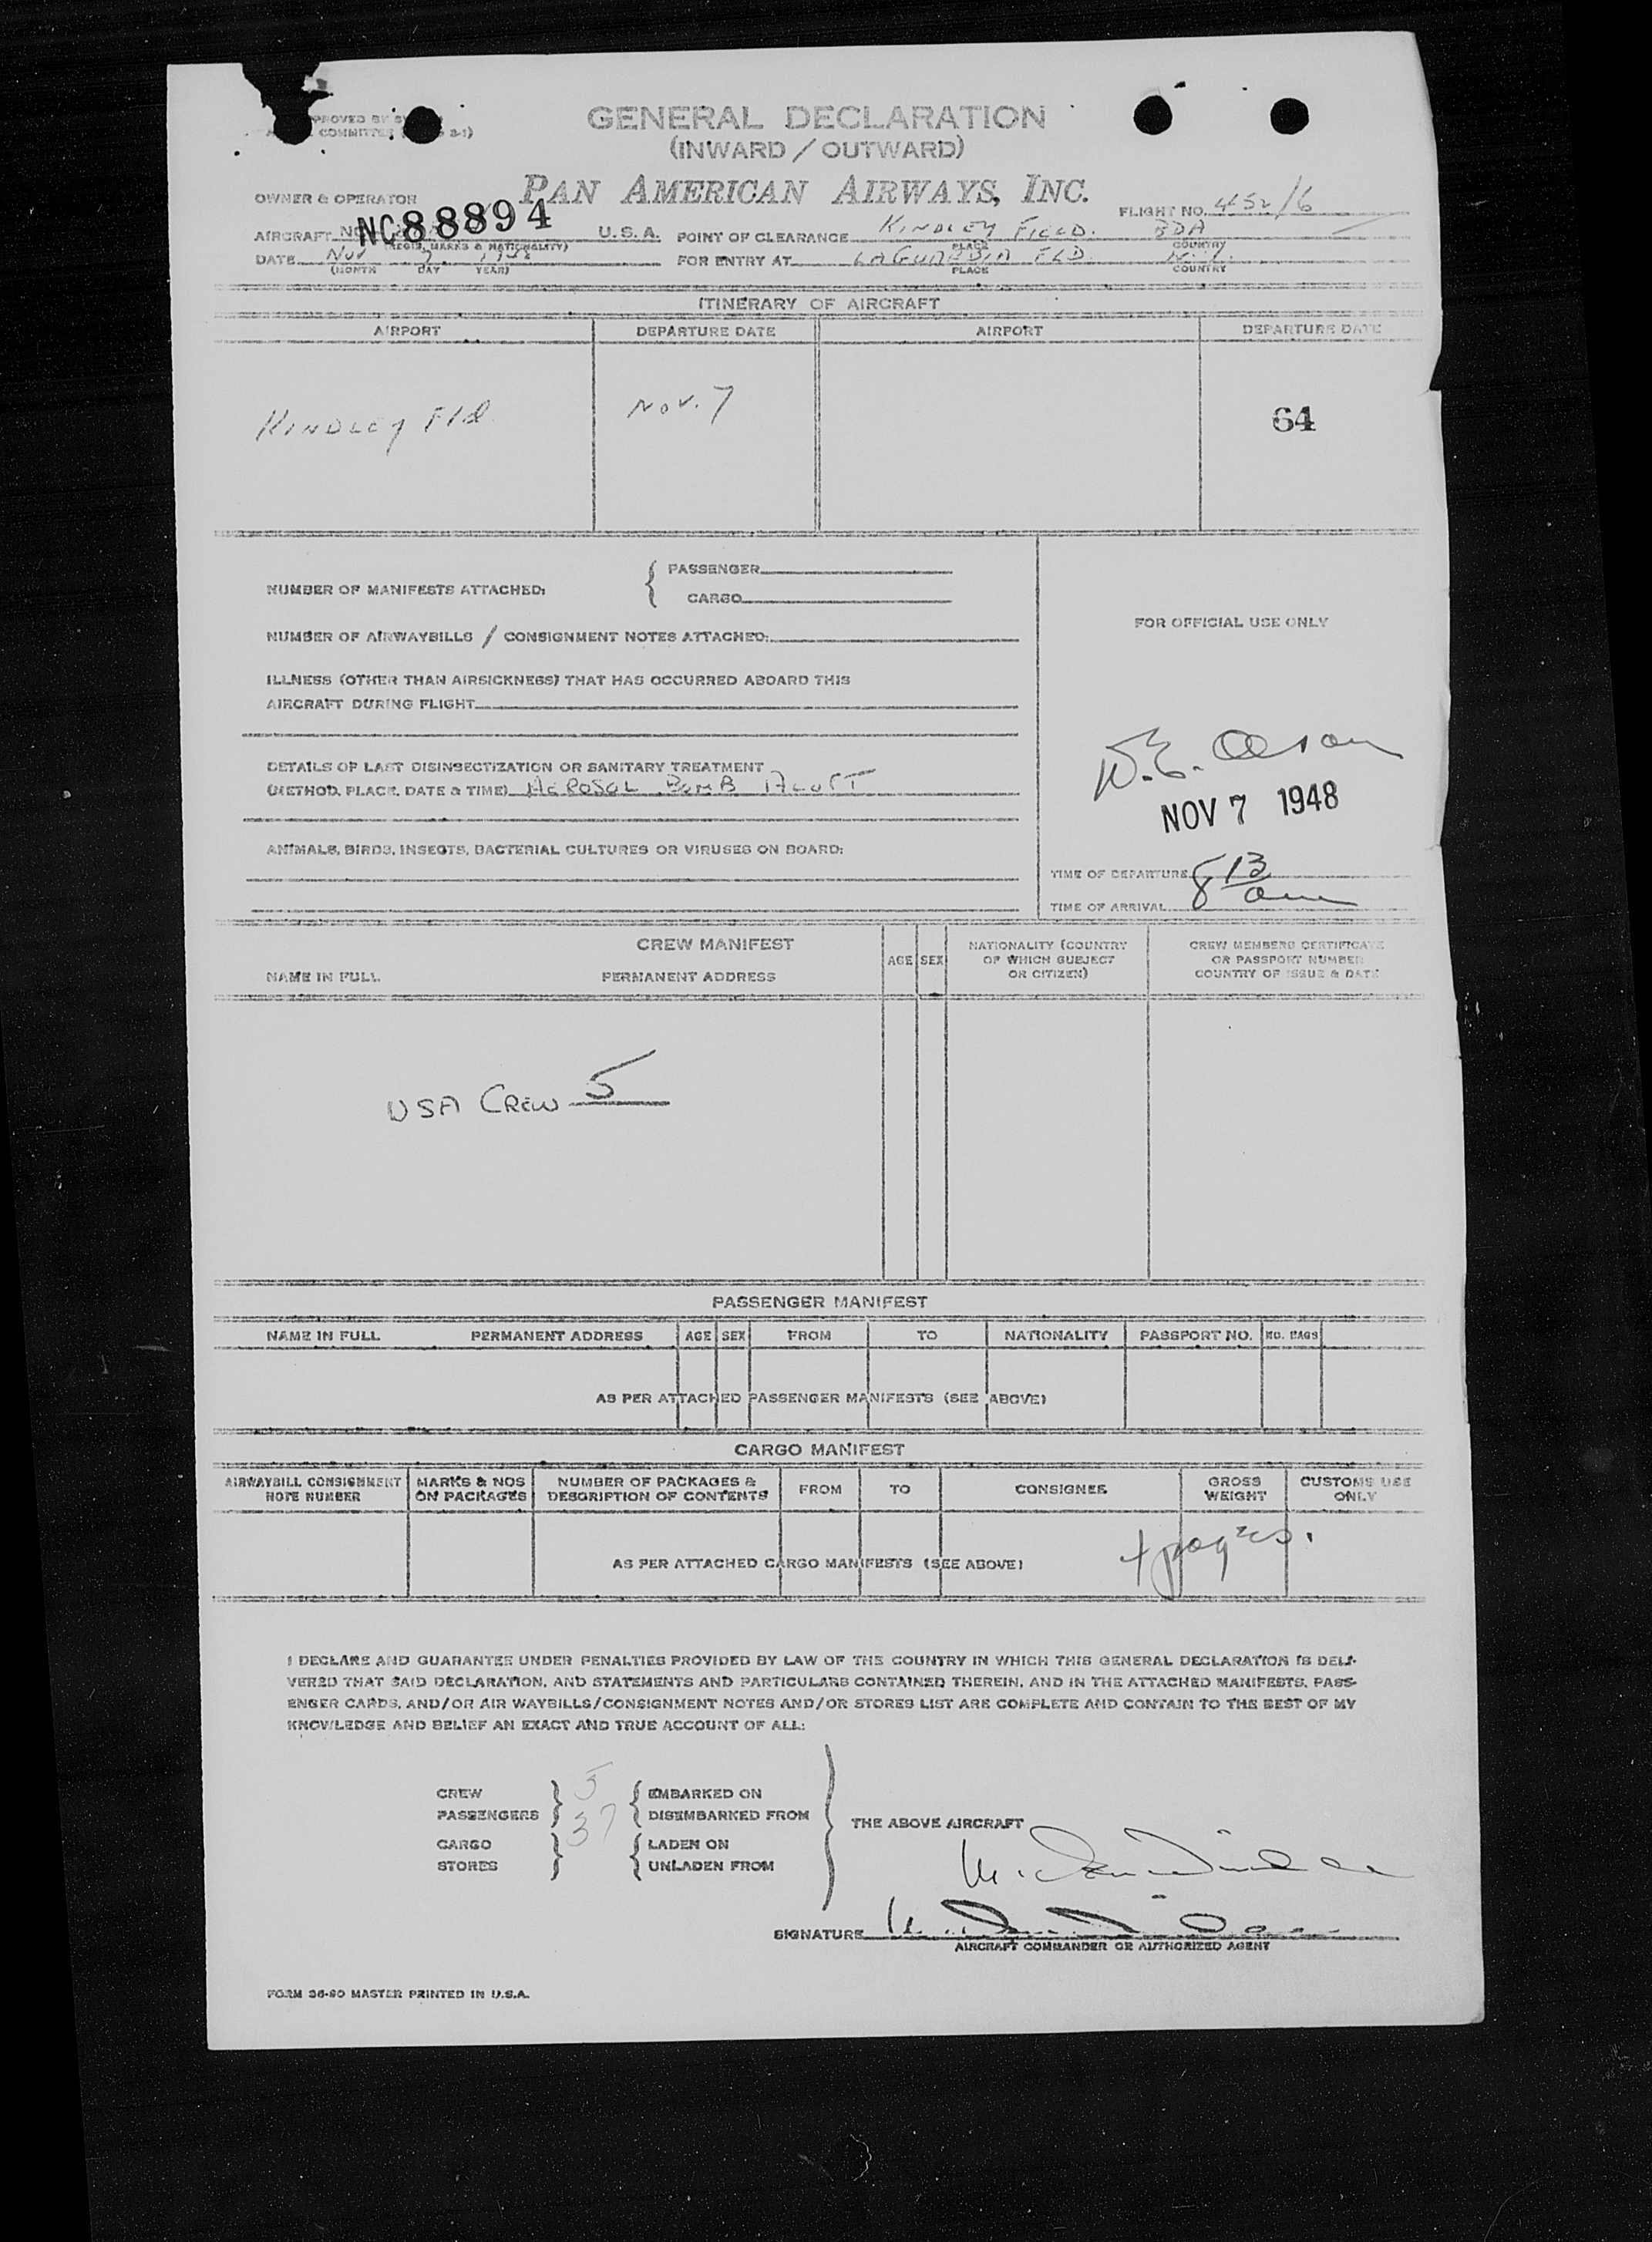 PROVED BY
COMMITTEE
GENERAL DECLARATION
(INWARD / OUTWARD)
OWNER & OPERATOR PAN AMERICAN AIRWAYS, INC. FLIGHT NO. 452/6
AIRCRAFT NC88894 U.S.A. POINT OF CLEARANCE KINDLEY FIELD. BDA
(REGIS, MARKS & NATIONALITY) PLACE COUNTRY
DATE NOV 7 FOR ENTRY AT LAGUARDIA FLD. N.Y.
(MONTH DAY YEAR) PLACE COUNTRY
ITINERARY OF AIRCRAFT
AIRPORT DEPARTURE DATE AIRPORT DEPARTURE DATE
KINDLEY Fld. NOV. 7 64
NUMBER OF MANIFESTS ATTACHED: { PASSENGER
CARGO
NUMBER OF AIRWAYBILLS / CONSIGNMENT NOTES ATTACHED:
ILLNESS (OTHER THAN AIRSICKNESS) THAT HAS OCCURRED ABOARD THIS
AIRCRAFT DURING FLIGHT
DETAILS OF LAST DISINSECTIZATION OR SANITARY TREATMENT
(METHOD, PLACE, DATE & TIME) AEROSOL BOMB ALOFT
ANIMALS, BIRDS, INSECTS, BACTERIAL CULTURES OR VIRUSES ON BOARD:
FOR OFFICIAL USE ONLY
W.E. Olson
NOV 7 1948
TIME OF DEPARTURE 8 13
TIME OF ARRIVAL am
CREW MANIFEST
NAME IN FULL PERMANENT ADDRESS AGE SEX NATIONALITY (COUNTRY OF WHICH SUBJECT OR CITIZEN) CREW MEMBERS CERTIFICATE OR PASSPORT NUMBER COUNTRY OF ISSUE & DATE
USA CREW 5
PASSENGER MANIFEST
NAME IN FULL PERMANENT ADDRESS AGE SEX FROM TO NATIONALITY PASSPORT NO. NO. BAGS
AS PER ATTACHED PASSENGER MANIFESTS (SEE ABOVE)
CARGO MANIFEST
AIRWAYBILL CONSIGNMENT NOTE NUMBER MARKS & NOS ON PACKAGES NUMBER OF PACKAGES & DESCRIPTION OF CONTENTS FROM TO CONSIGNEE GROSS WEIGHT CUSTOMS USE ONLY
AS PER ATTACHED CARGO MANIFESTS (SEE ABOVE) pages.
I DECLARE AND GUARANTEE UNDER PENALTIES PROVIDED BY LAW OF THE COUNTRY IN WHICH THIS GENERAL DECLARATION IS DELI-
VERED THAT SAID DECLARATION, AND STATEMENTS AND PARTICULARS CONTAINED THEREIN, AND IN THE ATTACHED MANIFESTS, PASS-
ENGER CARDS, AND/OR AIR WAYBILLS/CONSIGNMENT NOTES AND/OR STORES LIST ARE COMPLETE AND CONTAIN TO THE BEST OF MY
KNOWLEDGE AND BELIEF AN EXACT AND TRUE ACCOUNT OF ALL:
CREW 5 EMBARKED ON
PASSENGERS 37 DISEMBARKED FROM
THE ABOVE AIRCRAFT
CARGO LADEN ON
STORES UNLADEN FROM
SIGNATURE
AIRCRAFT COMMANDER OR AUTHORIZED AGENT
FORM 36-90 MASTER PRINTED IN U.S.A.